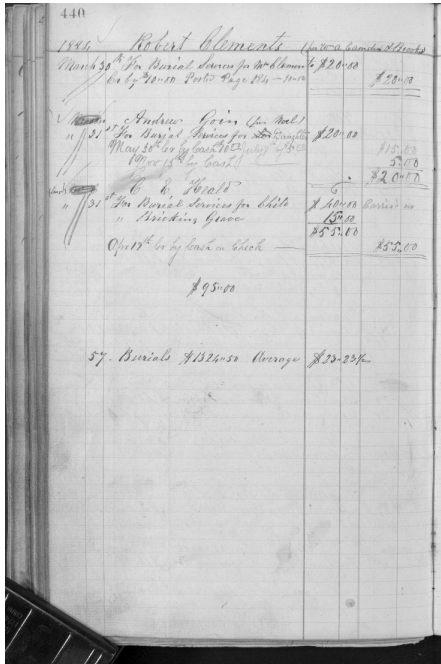 440
1884 Robert Clements (for Wm a Camden N Brooks
March 30th For Burial Services for Mr Clements $20-00
Cr by $10-00 Posted Page 184 - 10-00 $20-00
Andrew Goin (for Noel)
" 21st For Burial Services for Daughter $20-00
May 30th Cr by Cash $15.00
Nov 15th by Cast 5-00
$20-00
C E Heald
" 31st For Burial Services for Child $40-00 Carried on
" Bricking Grave 15-00
$55-00
Apr 17th Cr by Cash in Check $55.00
$95-00
57. Burials $1324-50 Average $23-23½